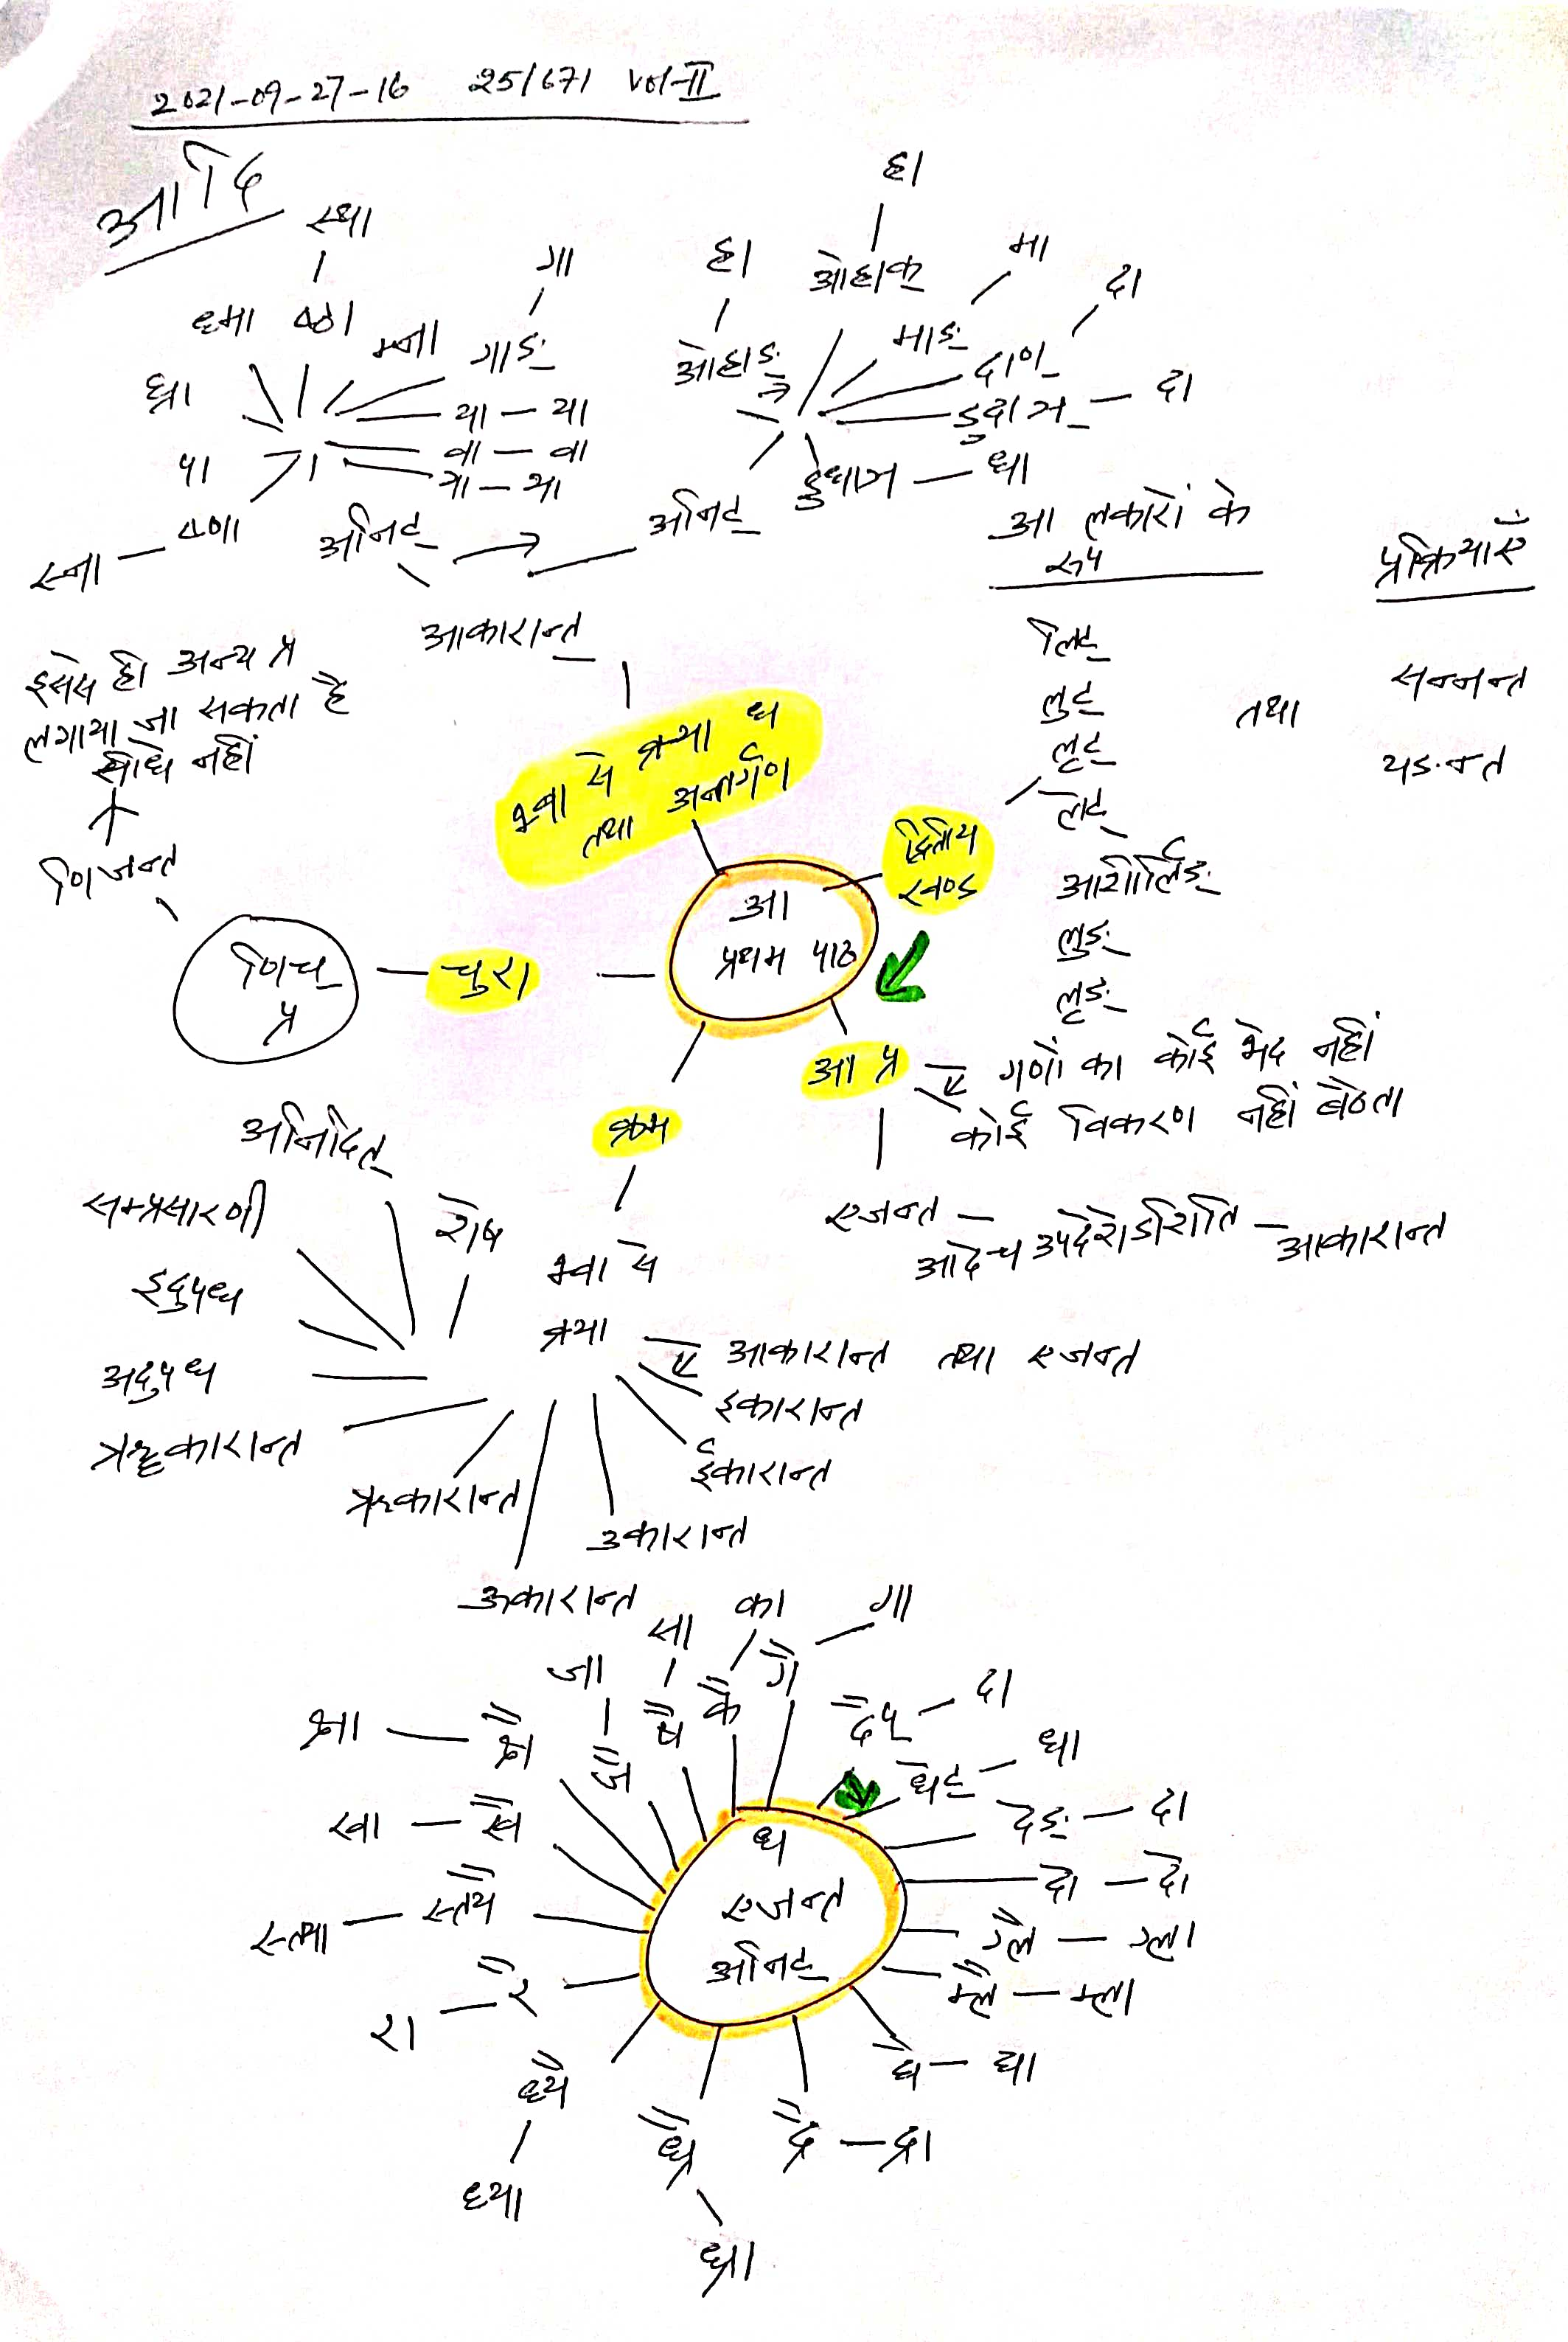 2021-09-27-16 251671 Vol-II
आदि
स्था
ध्मा ष्ठा म्ना
गा
गाङ्
घ्रा
या – या
वा – वा
पा
ष्णा
स्ना
अनिट्
हा
ओहाङ्
हा
ओहाक्
मा
माङ्
दा
दाण्
डुदाञ् – दा
डुधाञ् – धा
अनिट्
आकारान्त
आ लकारों के
रूप
प्रक्रियाएँ
लिट्
लुट्
लृट्
लोट्
आशीर्लिङ्
लुङ्
लृङ्
तथा
सन्नन्त
यङन्त
इससे ही अन्य प्र
लगाया जा सकता है
सीधे नहीं
णिजन्त
णिच्
प्र
चुरा
भ्वा से क्र्या ध
तथा अन्तर्गण
द्वितीय
खण्ड
आ
प्रथम पाठ
आ प्र
गणों का कोई भेद नहीं
कोई विकरण नहीं बैठता
एजन्त – आदेच उपदेशेऽशिति – आकारान्त
क्रम
भ्वा से
क्र्या
अनिदित्
सम्प्रसारणी
शेष
इदुपध
अदुपध
ॠकारान्त
ऋकारान्त
ऊकारान्त
उकारान्त
ईकारान्त
इकारान्त
आकारान्त तथा एजन्त
ध
एजन्त
अनिट्
गा
गै
का
कै
सा
षै
जा
जै
क्षा – क्षै
खा – खै
स्त्यै
रा – रै
ध्यै
ध्या
ध्रै
ध्रा
द्रै – द्रा
म्लै – म्ला
ग्लै – ग्ला
देङ् – दा
धेट् – धा
दैप् – दा